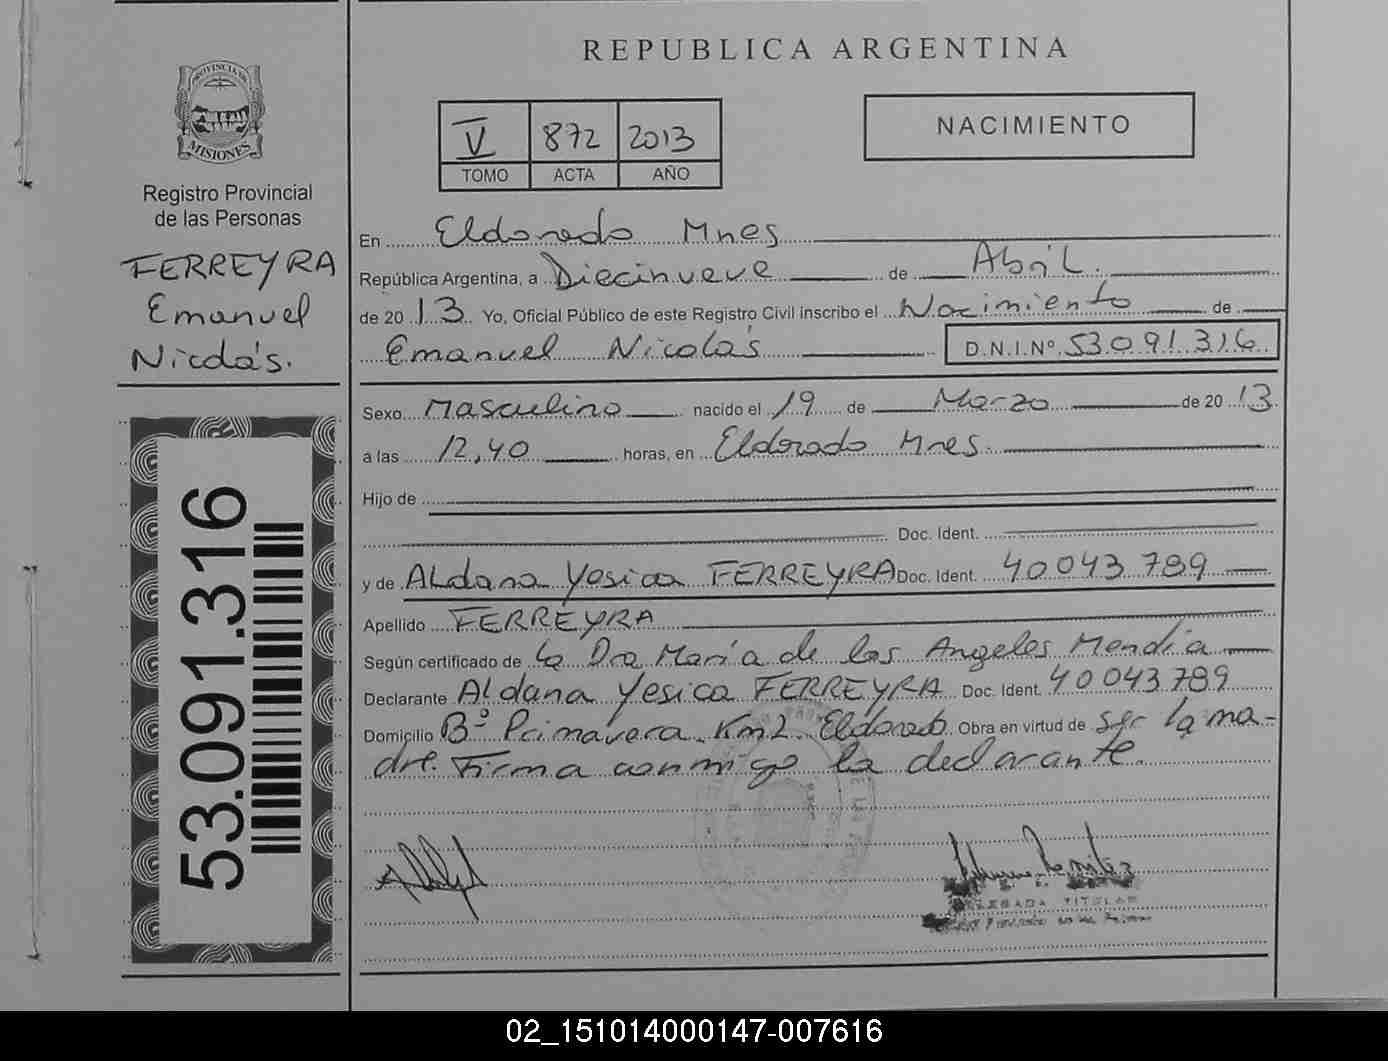 REPUBLICA ARGENTINA
PROVINCIA DE
MISIONES
Registro Provincial
de las Personas
FERREYRA
Emanuel
Nicolás.
53.091.316
V 872 2013
TOMO ACTA AÑO
NACIMIENTO
En Eldorado Mnes
República Argentina, a Diecinueve de Abril.
de 2013 Yo, Oficial Público de este Registro Civil inscribo el Nacimiento de
Emanuel Nicolás D.N.I.Nº 53.091.316
Sexo Masculino nacido el 19 de Marzo de 2013
a las 12,40 horas, en Eldorado Mnes.
Hijo de
Doc. Ident.
y de ALdana Yesica FERREYRA Doc. Ident. 40043789
Apellido FERREYRA
Según certificado de la Dra María de los Angeles Mendia
Declarante ALdana Yesica FERREYRA Doc. Ident. 40043789
Domicilio Bº Primavera Km2. Eldorado. Obra en virtud de ser la ma-
dre. Firma conmigo la declarante.
DELEGADA TITULAR
02_151014000147-007616